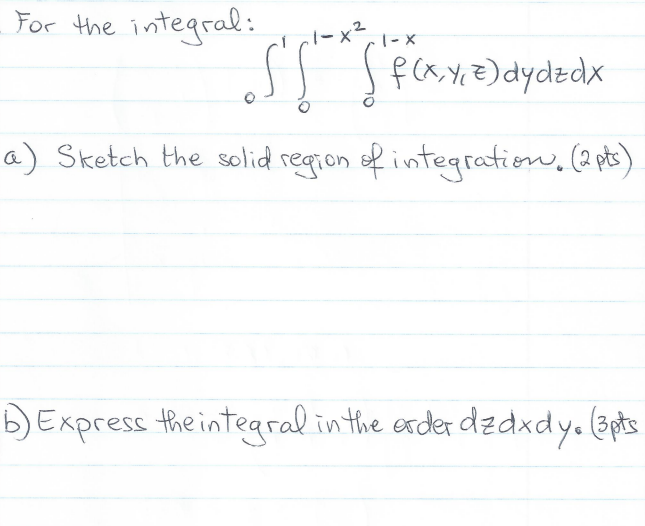 For the integral:
∫₀¹ ∫₀^{1-x²} ∫₀^{1-x} f(x,y,z) dy dz dx
a) Sketch the solid region of integration. (2 pts)
b) Express the integral in the order dzdxdy. (3pts